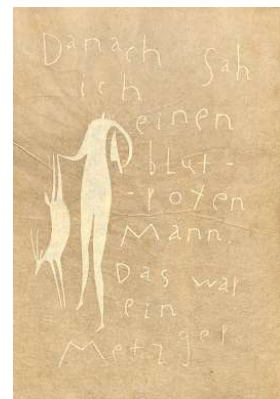 Danach sah
ich
einen
blut-
-roten
Mann.
Das war
ein
Metzger.